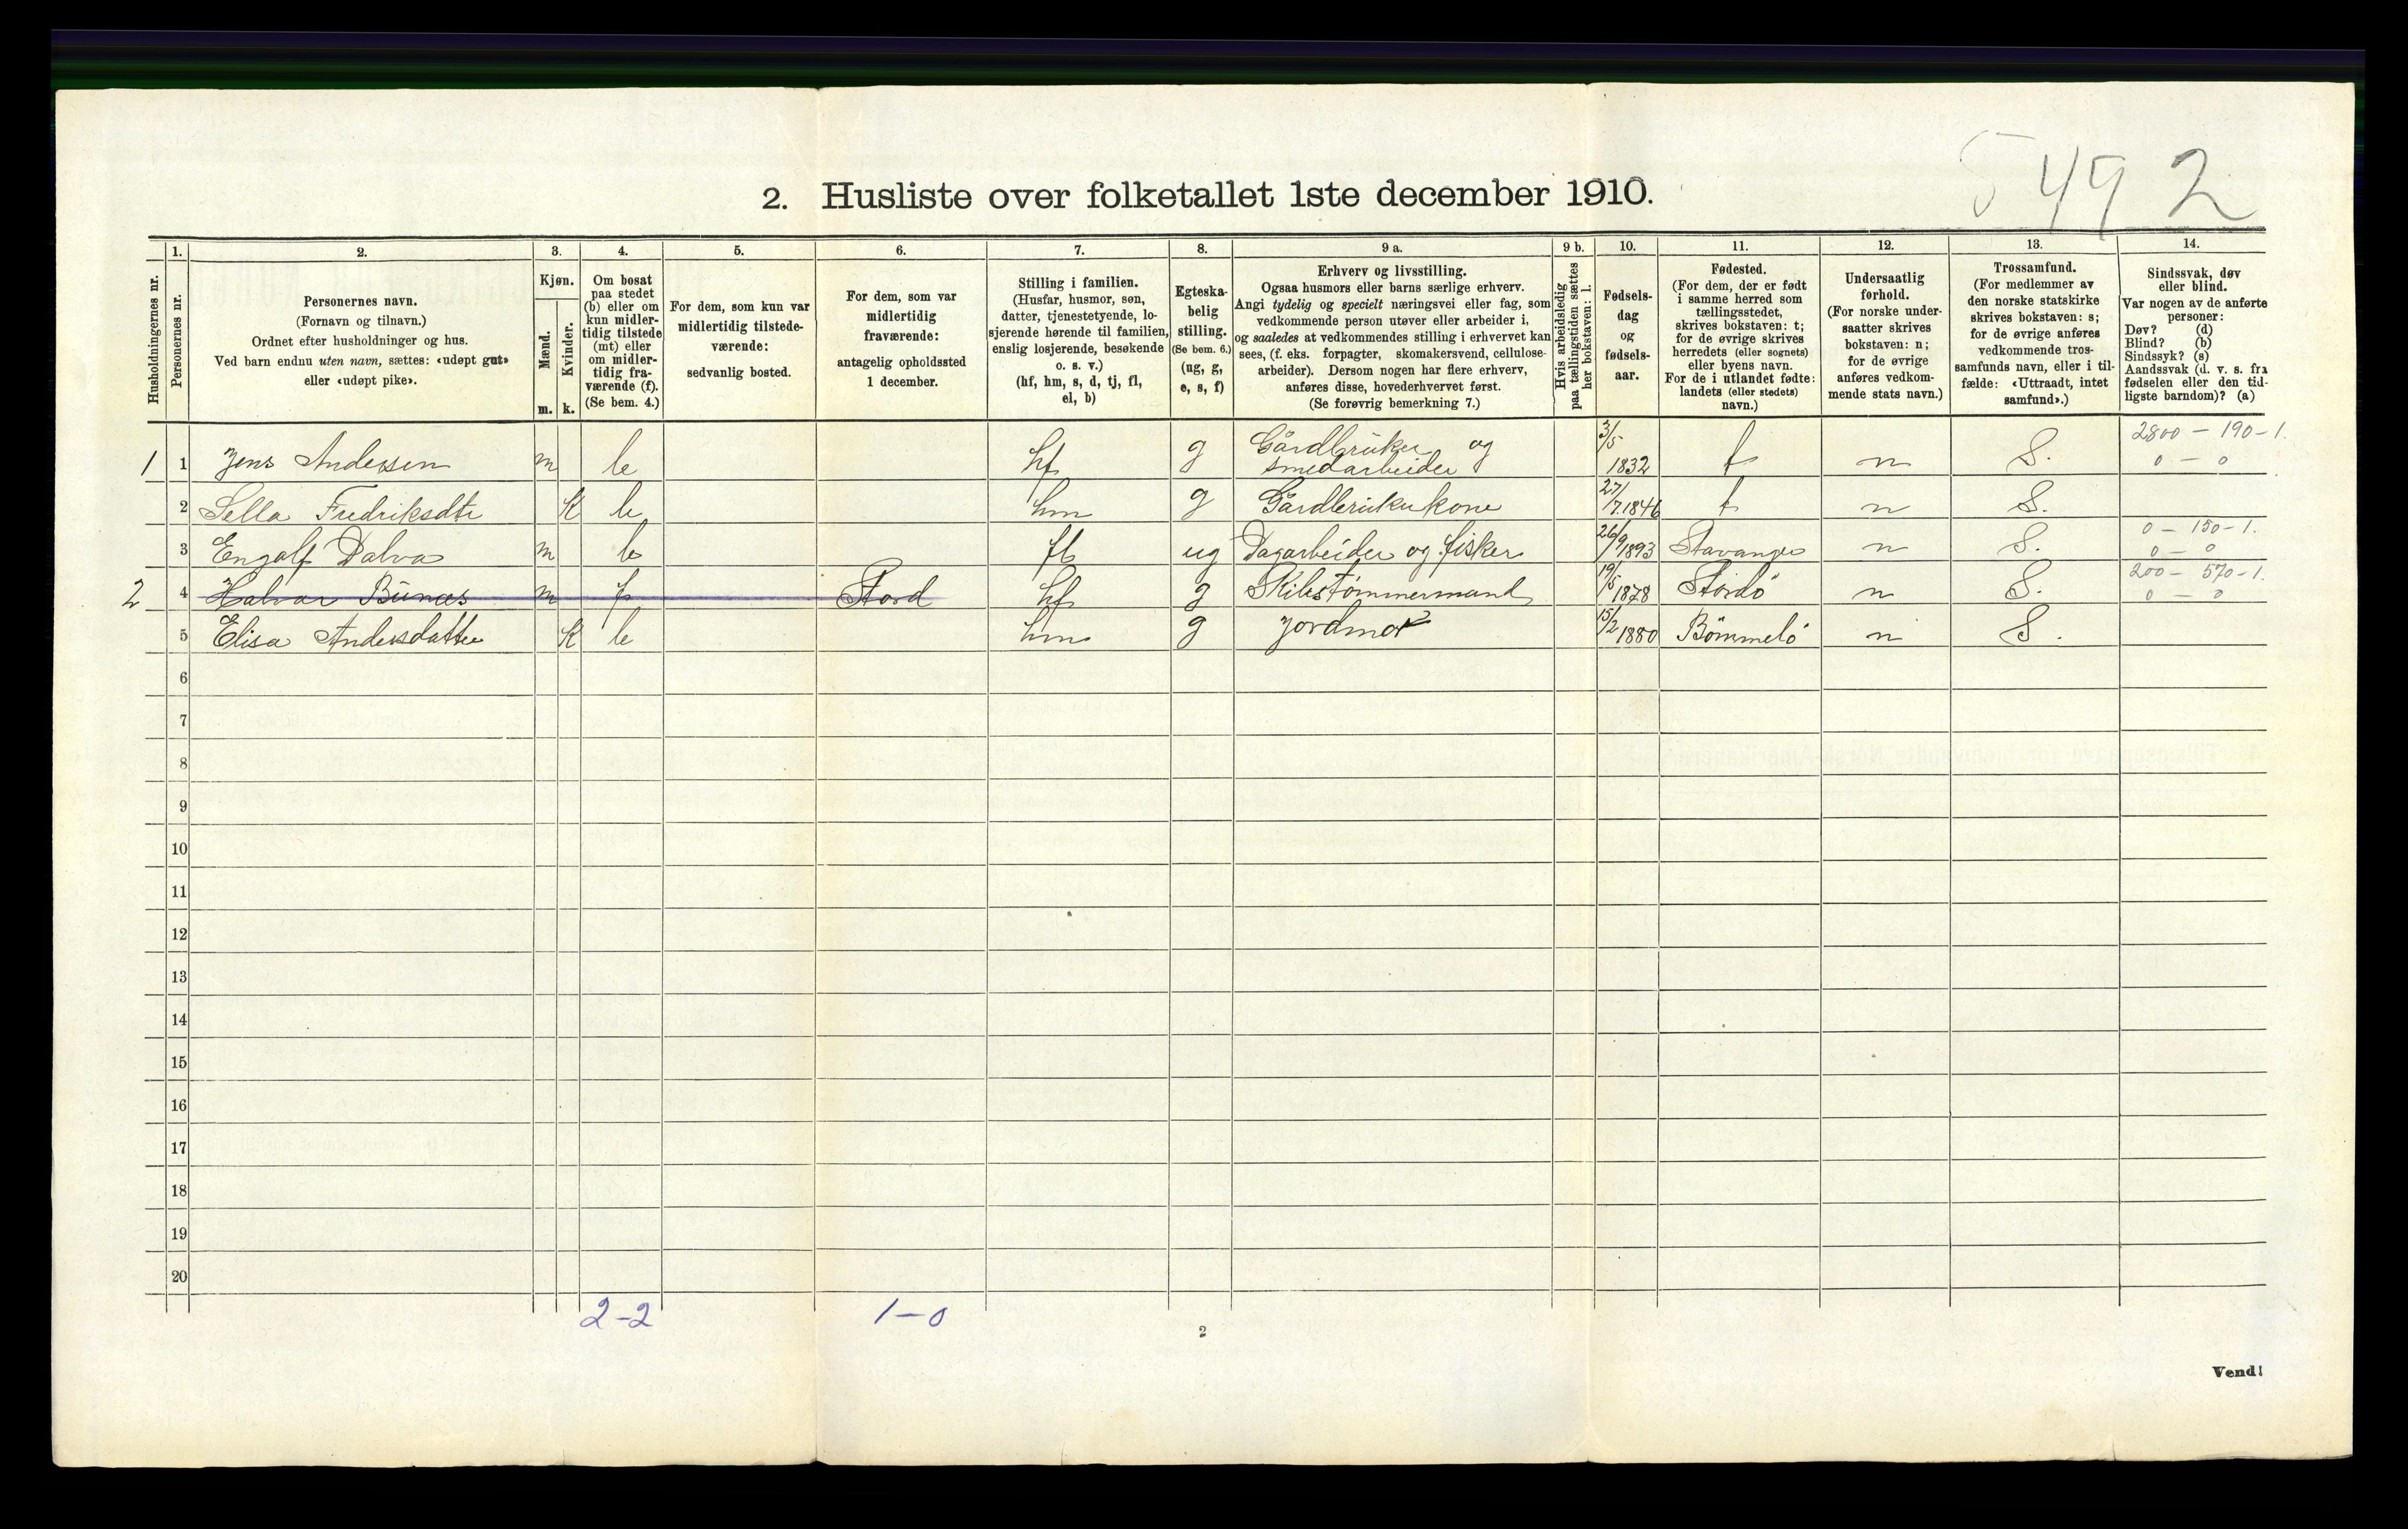 5492
2. Husliste over folketallet 1ste december 1910.
1. 2. 3. 4. 5. 6. 7. 8. 9 a. 9 b. 10. 11. 12. 13. 14.
Husholdningernes nr.
Personernes nr.
Personernes navn.
(Fornavn og tilnavn.)
Ordnet efter husholdninger og hus.
Ved barn endnu uten navn, sættes: «udøpt gut»
eller «udøpt pike».
Kjøn.
Mænd.
m.
Kvinder.
k.
Om bosat
paa stedet
(b) eller om
kun midler-
tidig tilstede
(mt) eller
om midler-
tidig fra-
værende (f).
(Se bem. 4.)
For dem, som kun var
midlertidig tilstede-
værende:
sedvanlig bosted.
For dem, som var
midlertidig
fraværende:
antagelig opholdssted
1 december.
Stilling i familien.
(Husfar, husmor, søn,
datter, tjenestetyende, lo-
sjerende hørende til familien,
enslig losjerende, besøkende
o. s. v.)
(hf, hm, s, d, tj, fl,
el, b)
Egteska-
belig
stilling.
(Se bem. 6.)
(ug, g,
e, s, f)
Erhverv og livsstilling.
Ogsaa husmors eller barns særlige erhverv.
Angi tydelig og specielt næringsvei eller fag, som
vedkommende person utøver eller arbeider i,
og saaledes at vedkommendes stilling i erhvervet kan
sees, (f. eks. forpagter, skomakersvend, cellulose-
arbeider). Dersom nogen har flere erhverv,
anføres disse, hovederhvervet først.
(Se forøvrig bemerkning 7.)
Hvis arbeidsledig
paa tællingstiden sættes
her bokstaven: l.
Fødsels-
dag
og
fødsels-
aar.
Fødested.
(For dem, der er født
i samme herred som
tællingsstedet,
skrives bokstaven: t;
for de øvrige skrives
herredets (eller sognets)
eller byens navn.
For de i utlandet fødte:
landets (eller stedets)
navn.)
Undersaatlig
forhold.
(For norske under-
saatter skrives
bokstaven: n;
for de øvrige
anføres vedkom-
mende stats navn.)
Trossamfund.
(For medlemmer av
den norske statskirke
skrives bokstaven: s;
for de øvrige anføres
vedkommende tros-
samfunds navn, eller i til-
fælde: «Uttraadt, intet
samfund».)
Sindssvak, døv
eller blind.
Var nogen av de anførte
personer:
Døv? (d)
Blind? (b)
Sindssyk? (s)
Aandssvak (d. v. s. fra
fødselen eller den tid-
ligste barndom)? (a)
1 1 Jens Andersen m b hf g Gårdbruker og smedarbeider 3/5 1832 t n S. 2800 - 190 - 1. 0 - 0
2 Sella Fredriksdtr K b hm g Gårdbrukerkone 27/7.1846 t n S.
3 Engalf Dalva m b fl ug Dagarbeider og fisker 26/9 1893 Stavanger n S. 0 - 150 - 1. 0 - 0
2 4 Halvar Bünæs m f Stord hf g Skibstømmermand 19/5 1878 Stordö n S. 200 - 570 - 1. 0 - 0
5 Elisa Andersdatter K b hm g Jordmor 15/2 1880 Bömmelö n S.
6
7
8
9
10
11
12
13
14
15
16
17
18
19
20
2-2 1-0
2
Vend!